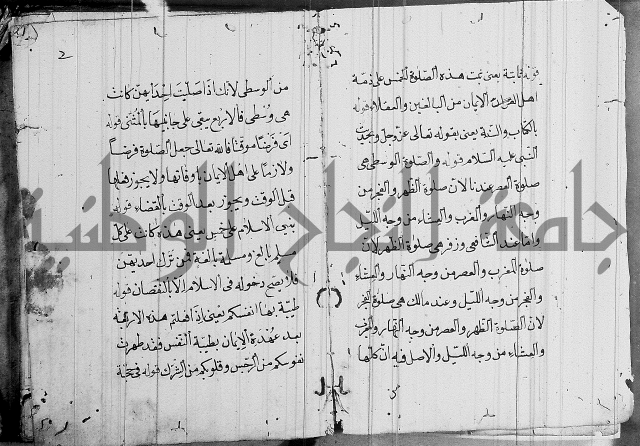 قوله ثابتة يعنى تمت هذه الصلوة الخمس على ذمة
اهل الايمان من البالغين والعقلاء قوله
بالكتاب والسنة يعنى بقوله تعالى عز وجل وبحديث
النبى عليه السلام قوله والصلوة الوسطى هى
صلوة العصر عندنا لان صلوة الظهر والفجر من
وجه النهار والمغرب والعشاء من وجه الليل
واما عند الشافعى وزفر هى صلوة الظهر لان
صلوة المغرب والعصر من وجه النهار والعشاء
والفجر من وجه الليل وعند مالك هى صلوة الفجر
لان الصلوة الظهر والعصر من وجه النهار والمغرب
والعشاء من وجه الليل والاصل فيه ان كلها
2
من الوسطى لانك اذا صليت احدا يهن كانت
هى وسطى فالاربع يبقى على جانبيها بالمثنى قوله
اى فرضا موقتا فالله تعالى جعل الصلوة فرضا
ولازما على اهل الايمان باوقاتها ولا يجوز
قبل الوقت ويجوز بعد الوقت بالقضاء قوله
بنى الاسلام على خمس يعنى هذه كانت على كل
مسلم بالغ ومسلمة بالغة فمن ترك احديهن
فلا يصح دخوله فى الاسلام الا بالنقصان قوله
طيبة بها انفسكم يعنى اذا هذه الاربعة
بعد عقدة الايمان بطيبة النفس فقد طهرت
نفوسكم من الرجس وقلوبكم من الشرك قوله
جامعة النجاح الوطنية